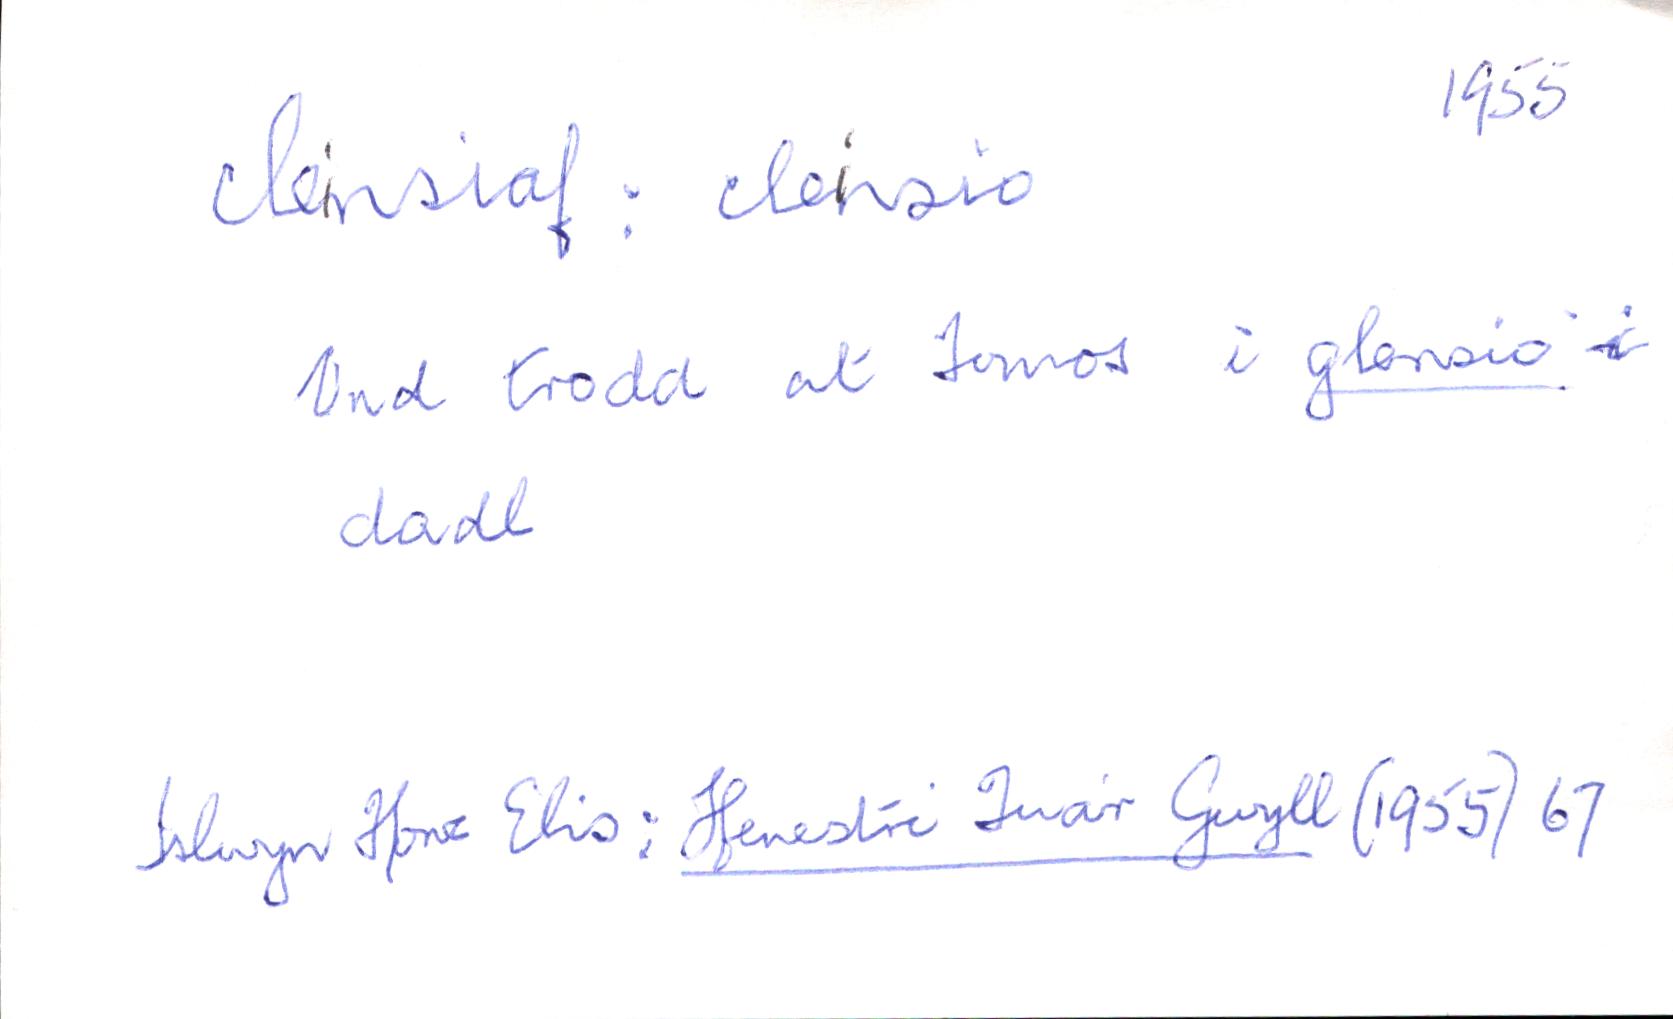 1955
cleinsiaf : cleinsio
Ond trodd at Tomos i glensio i
dadl
Islwyn Ffowc Elis : Ffenestri Tua'r Gwyll (1955) 67